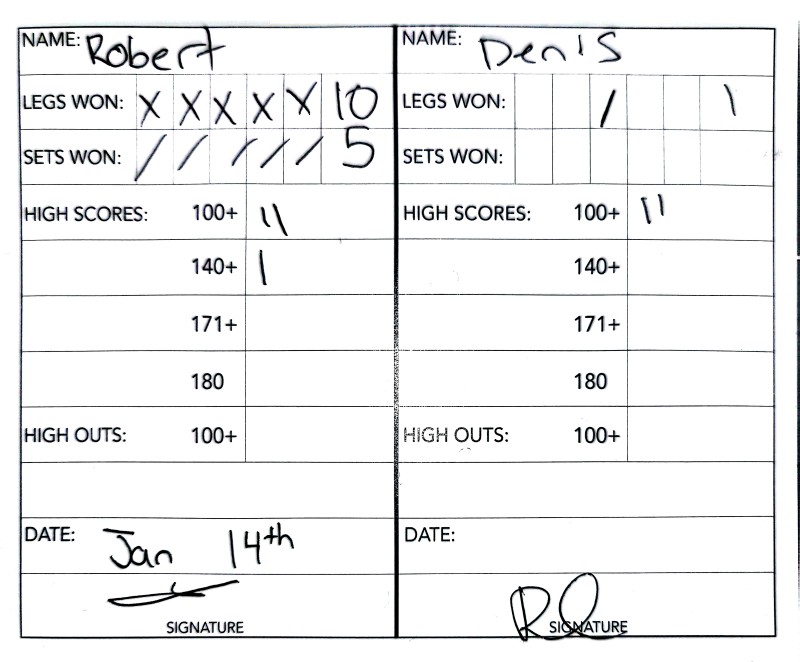 NAME: Robert
LEGS WON: X X X X X 10
SETS WON: / / / / / 5
HIGH SCORES: 100+ \\
140+ |
171+
180
HIGH OUTS: 100+
DATE: Jan 14th
SIGNATURE
NAME: Denis
LEGS WON: / 1
SETS WON:
HIGH SCORES: 100+ \\
140+
171+
180
HIGH OUTS: 100+
DATE:
SIGNATURE